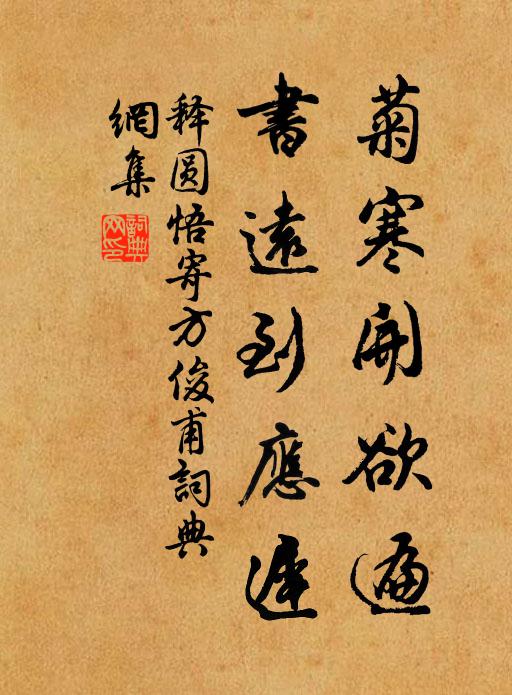 菊寒開欲遍
書遠到應遲
释圆悟寄方俊甫詞典
網集
詞典
网印